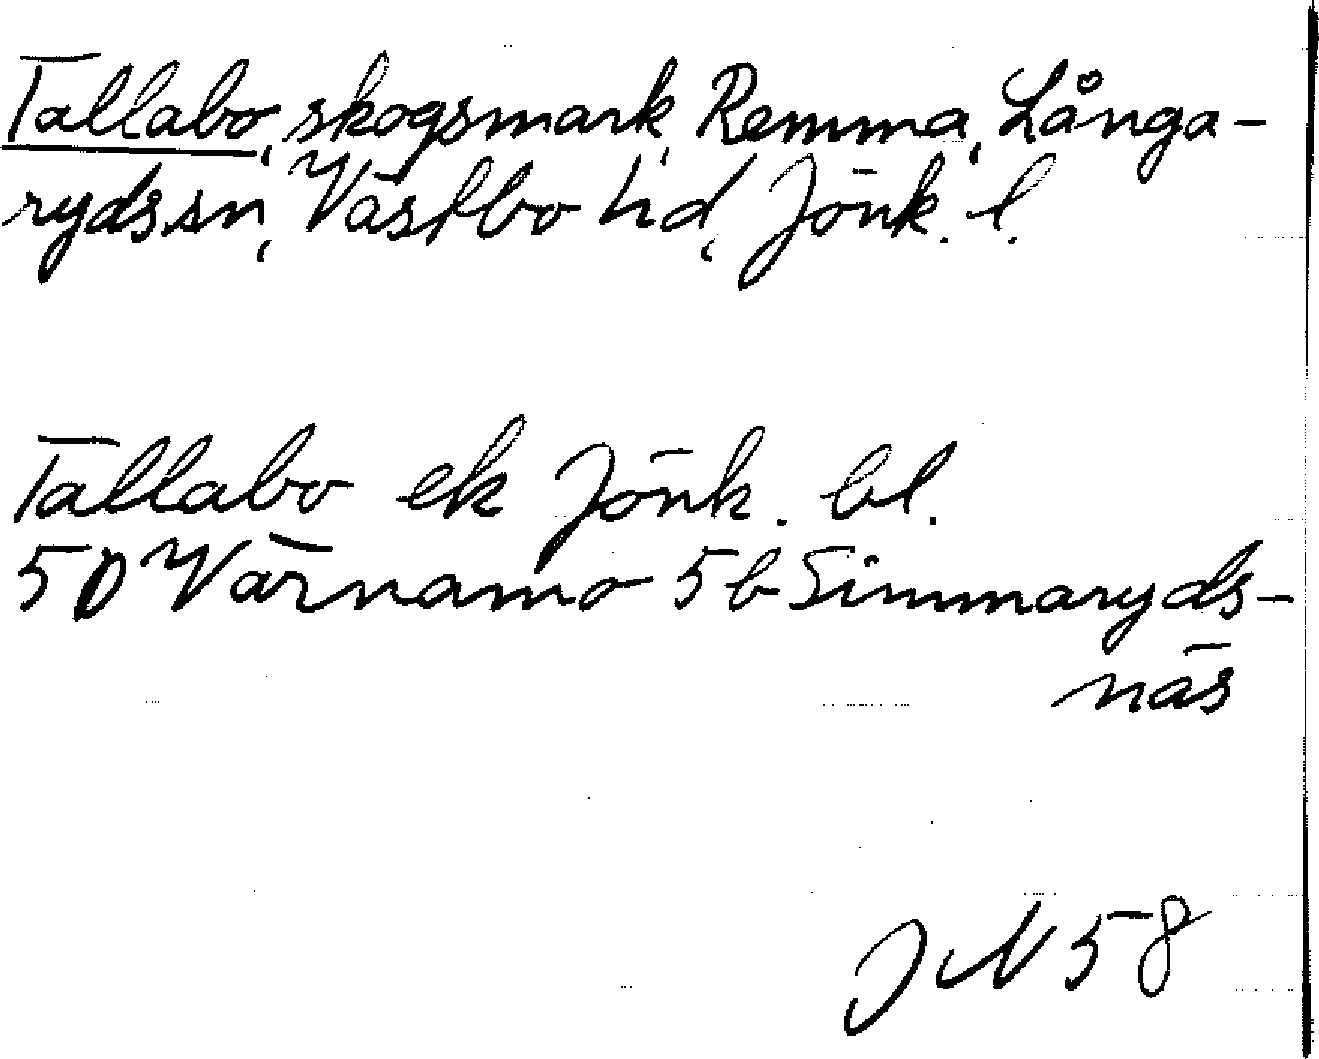 Tallabo, skogsmark, Remma, Långa-
ryds sn, Västbo hd, Jönk. l.
Tallabo ek Jönk. bl.
5D Värnamo 5b Simmaryds-
näs
JN 58